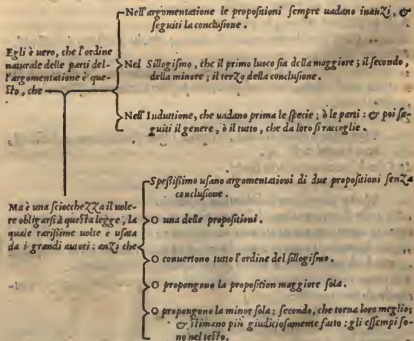 Egli è uero, che l'ordine
naturale delle parti del-
l'argomentatione è que-
sto, che
Nell'argomentatione le propositioni sempre uadano inanzi, &
seguiti la conclusione.
Nel Sillogismo, che il primo luoco sia della maggiore; il secondo,
della minore; il terzo della conclusione.
Nell'Induttione, che uadano prima le specie; ò le parti: & poi se-
guiti il genere, ò il tutto, che da loro si raccoglie.
Ma è una sciocchezza il uole-
re obligarsi à questa legge, la
quale rarissime uolte è usata
da i grandi autori: anzi che
Spessissimo usano argomentationi di due propositioni senza
conclusione.
O una delle propositioni.
O conuertono tutto l'ordine del sillogismo.
O propongono la proposition maggiore sola.
O propongono la minor sola; secondo, che torna loro meglio;
& stimano più giudiciosamente fatto: gli essempi so-
no nel testo.